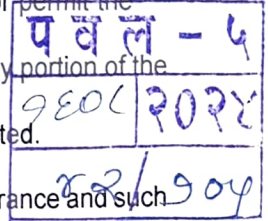 permit the
प व ल - ५
y portion of the
१६०८ २०२४
ted.
४२/१०५
rance and such